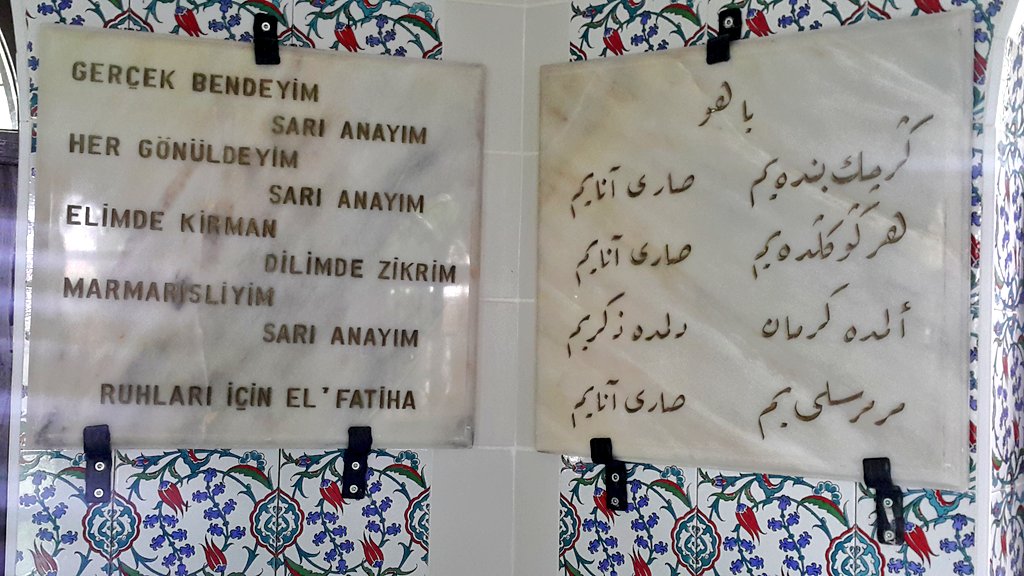 GERÇEK BENDEYİM
SARI ANAYIM
HER GÖNÜLDEYİM
SARI ANAYIM
ELİMDE KİRMAN
DİLİMDE ZİKRİM
MARMARİSLİYİM
SARI ANAYIM
RUHLARI İÇİN EL'FATİHA
يا هو
گرچك بنده يم
صارى آنايم
هر گوڭلده يم
صارى آنايم
ألمده كرمان
دلمده ذكريم
مرمرسلى يم
صارى آنايم